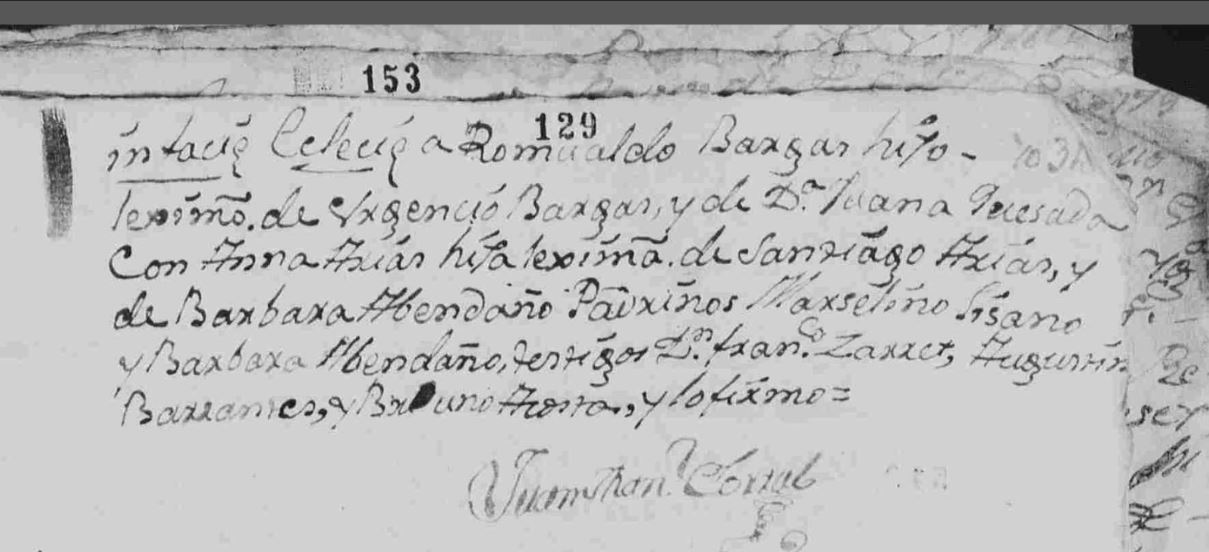 153
129
in facie Eclecie a Romualdo Bargas hijo -
lexímo. de Urgencio Bargas, y de Da. Juana Quesada
Con Anna Arias hija lexíma. de Santiago Arias, y
de Barbara Abendaño Padrinos Marselino Lisano
y Barbara Abendaño, testigos Dn. Franco. Zarret, Augustin
Barrantes, y Bruno Acosta, y lo firmo =
Juan Fran. Corral